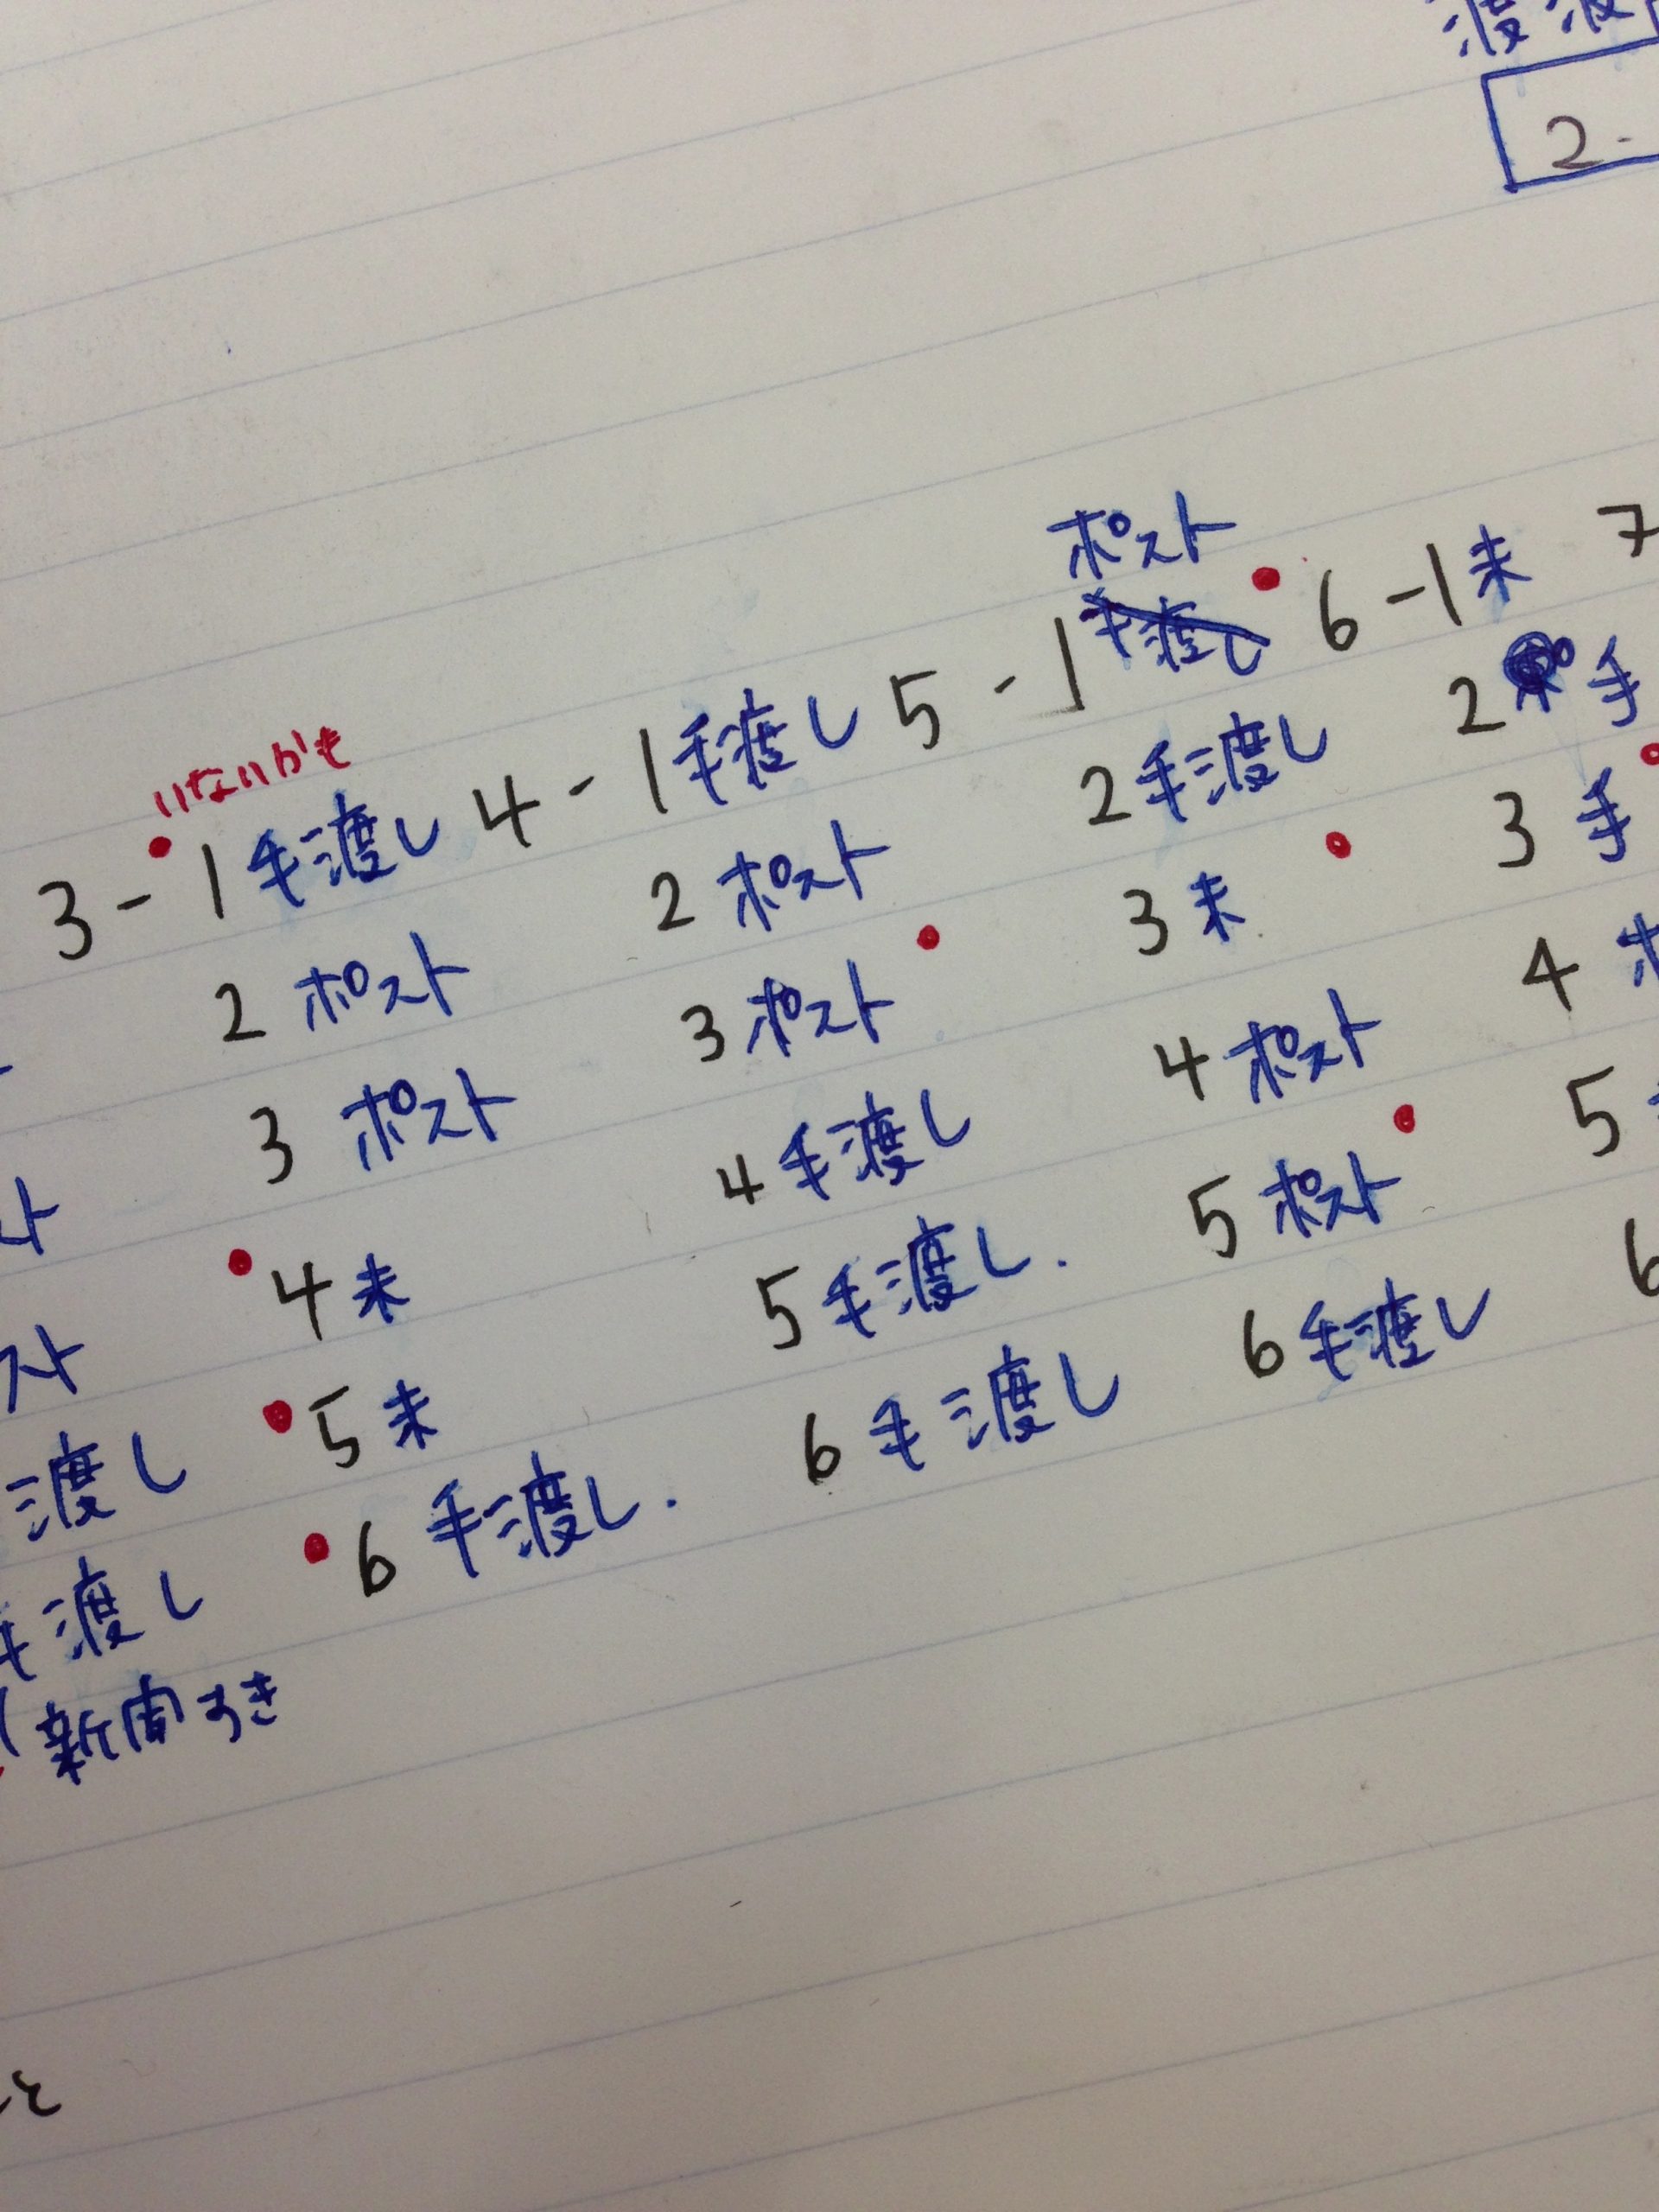 2-
いないかも
3-1 手渡し
2 ポスト
3 ポスト
4 未
5 未
6 手渡し.
4-1 手渡し
2 ポスト
3 ポスト
4 手渡し
5 手渡し.
6 手渡し
ポスト
5-1 手渡し
2 手渡し
3 未
4 ポスト
5 ポスト
6 手渡し
6-1 未
2 手
3 手
4 ポ
5
6
7
渡し
手渡し